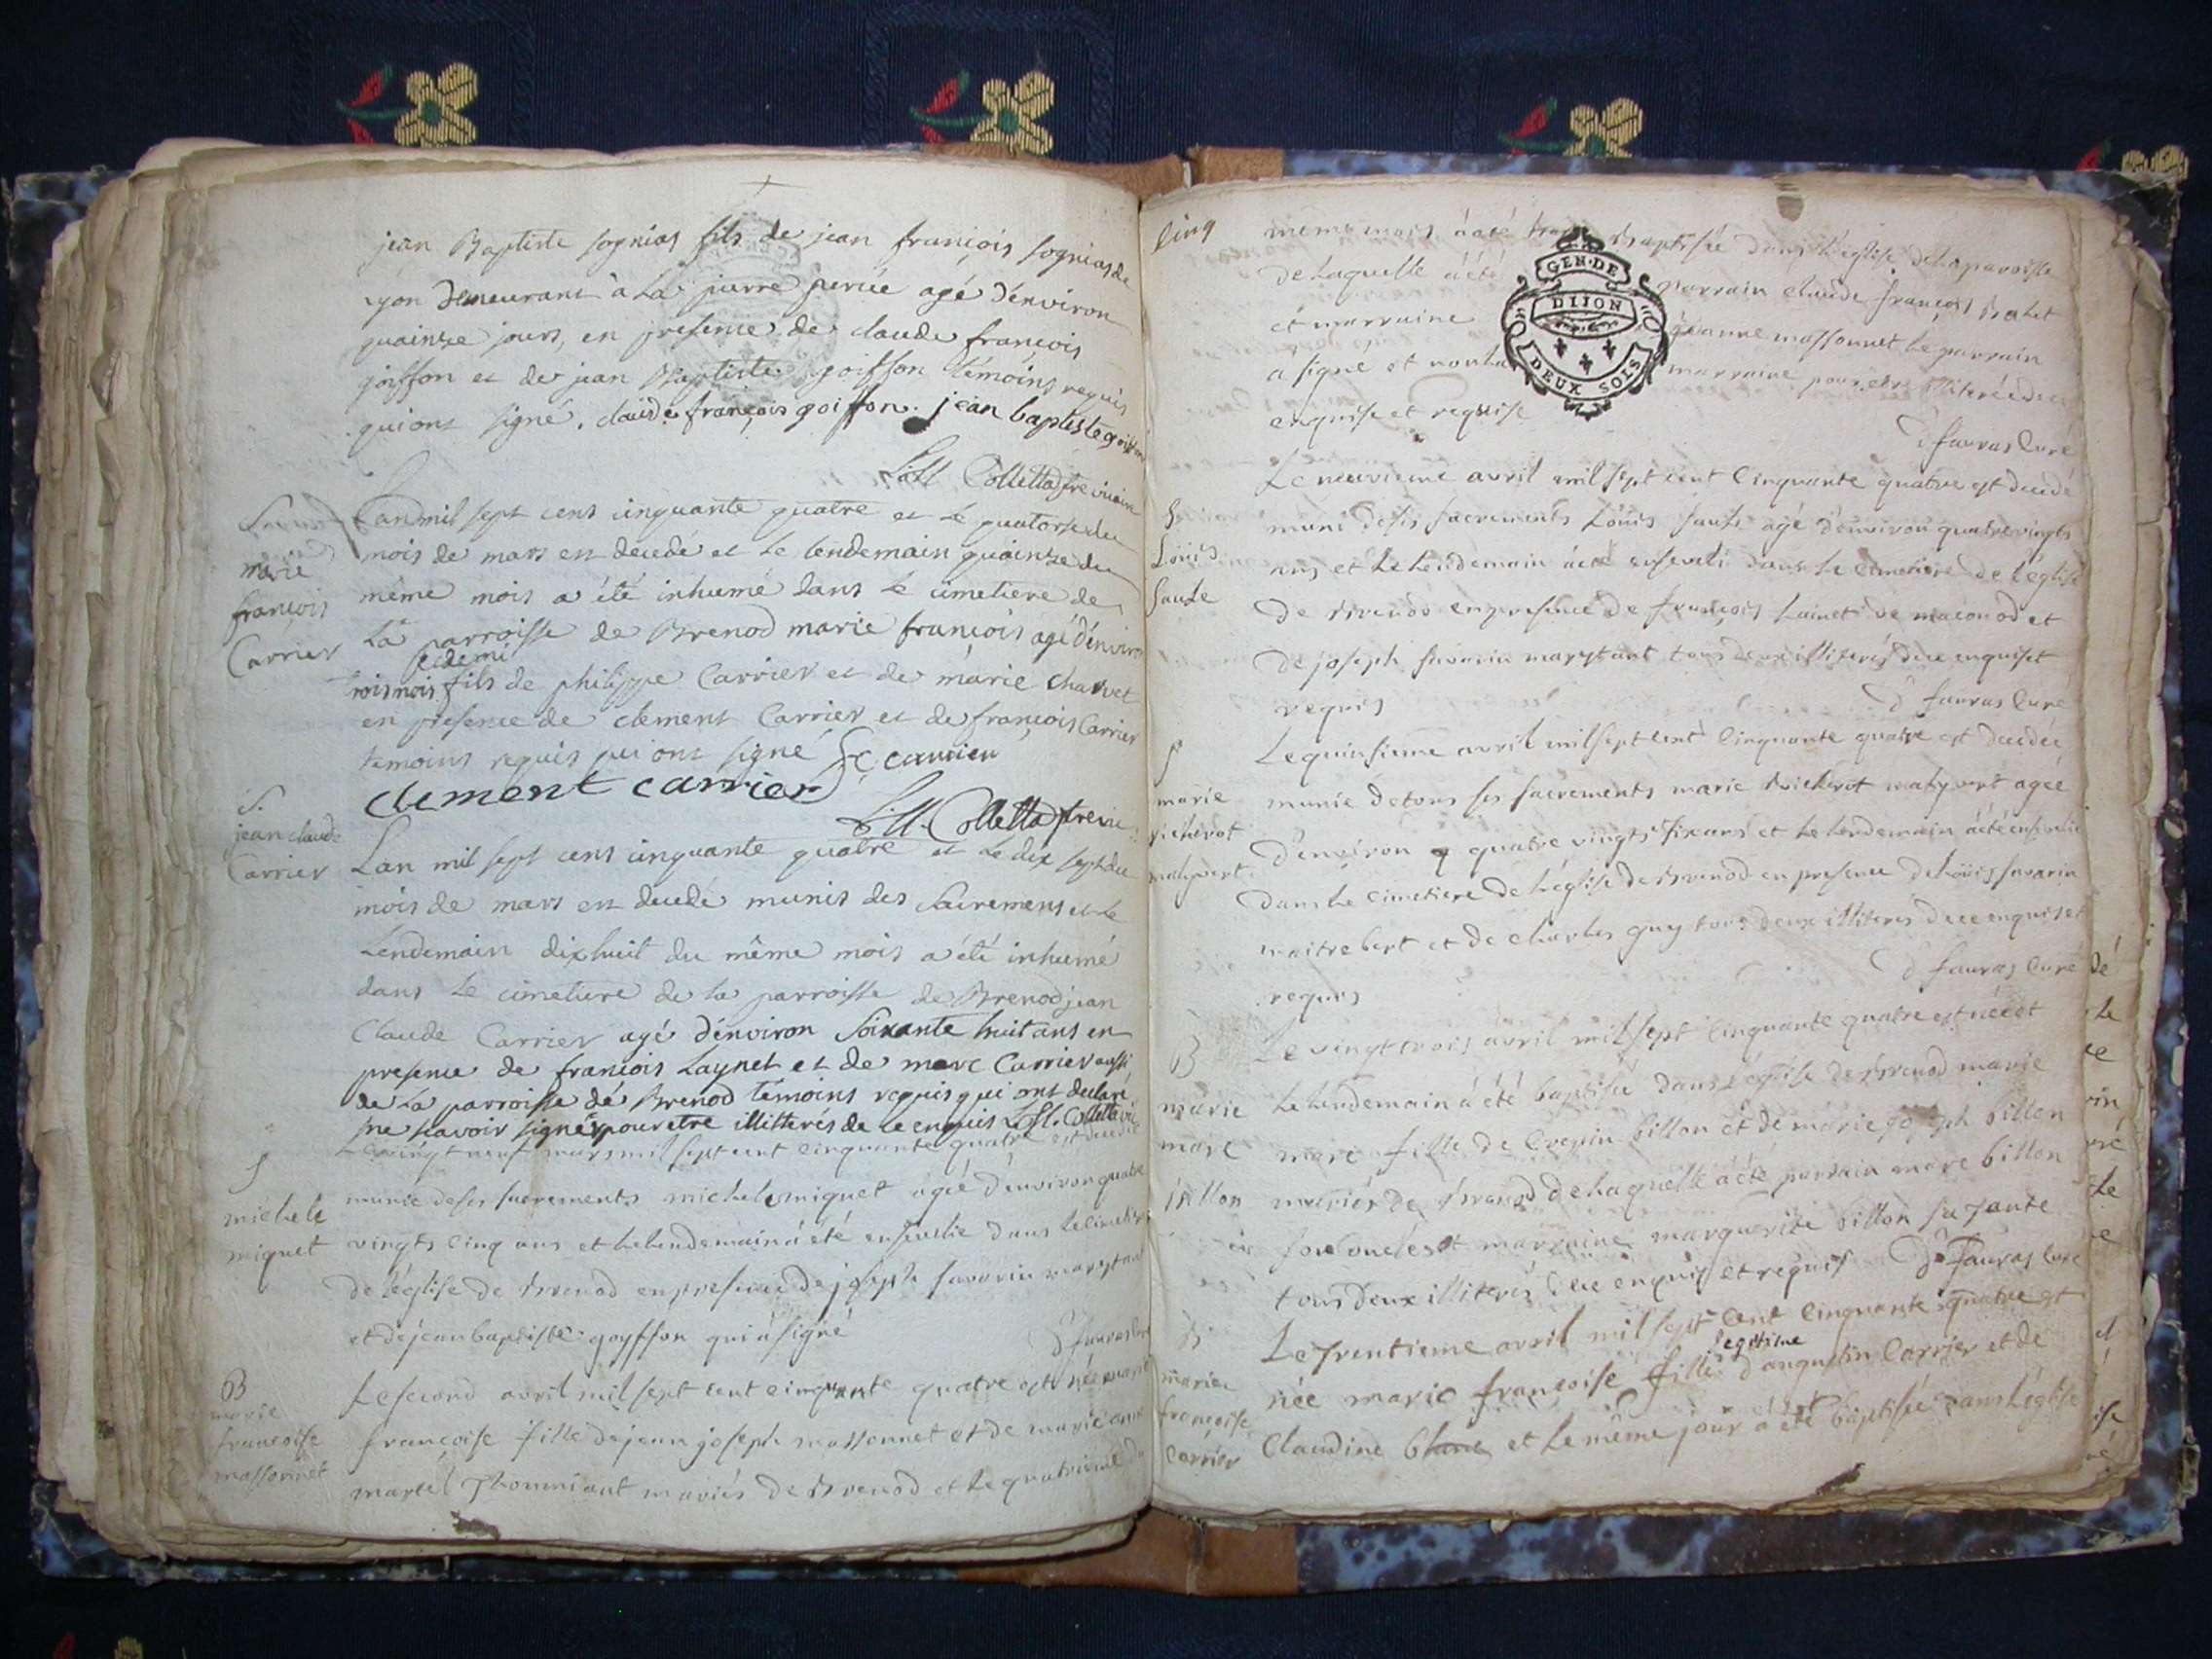 jean Baptiste sognias fils de jean françois sognias de
demeurant à la pierre percée agé d'environ
quainze jours, en presence de claude françois
joiffon et de jean Baptiste goiffon témoins requis
qui ont signé. claude françois goiffon. jean baptiste goiffon
Colletta
marie
françois
Carrier
L'an mil sept cens cinquante quatre et le quatorse du
mois de mars est decedé et le lendemain quainze du
même mois a été inhumé dans le cimetiere de
La parroisse de Brenod marie françois agé d'environ
et demi
trois mois fils de philippe Carrier et de marie charvet
en presence de clement Carrier et de françois Carrier
temoins requis qui ont signé f c carrier
clement carrier
Colletta
S.
jean claude
Carrier
Lan mil sept cens cinquante quatre et le dix sept du
mois de mars est decedé munis des Sacremens et le
Lendemain dixhuit du même mois a été inhumé
dans le cimetiere de la parroisse de Brenod jean
Claude Carrier agé d'environ Soixante huit ans en
presence de françois Laynet et de marc Carrier aussi
de La parroisse de Brenod témoins requis qui ont declaré
ne scavoir signer pour etre illitterés de ce enquis Colletta
S
michele
miquet
Le vingt neuf mars mil sept cent cinquante quatre est decedée
munie de ses sacrements michele miquet agée d'environ quatre
vingts cinq ans et le lendemain a été ensevelie dans le cimetiere
de l'église de Brenod en presence de joseph savarin marytant
et de jean baptiste goyffon qui a signé
D fauras curé
B
marie
francoise
massonnet
Le second avril mil sept cent cinquante quatre est née marie
françoise fille de jean joseph massonnet et de marie anne
martel Thomniant mariés de Brenod et le quatrieme du
cinq
meme mois a été baptisée dans l'église de la paroisse
de Laquelle a été parrain claude françois
et marraine jeanne massonnet le parrain
a signé et non la marraine pour etre illiterée de ce
enquise et requise
D fauras curé
S
Louis
Saute
Le neuvieme avril mil sept cent cinquante quatre est decedé
muni de ses sacrements Louis saute agé d'environ quatre vingts
ans et le lendemain a été enseveli dans le cimetiere de l'église
de Brenod en presence de françois Lainet de maconod et
de joseph savarin marytant tous deux illiterés de ce enquis et
requis
D fauras curé
S
marie
richerot
malyvert
Le quinsieme avril mil sept cent cinquante quatre est decedée
munie de tous ses sacrements marie richerot malyvert agée
d'environ quatre vingts six ans et le lendemain a été ensevelie
dans le cimetiere de l'église de Brenod en presence de Louis savarin
maitrebert et de charles guy tous deux illiterés de ce enquis et
requis
D fauras curé
B
marie
marc
billon
Le vingt trois avril mil sept cinquante quatre est née et
le lendemain a été baptisée dans l'église de Brenod marie
marc fille de Crepin billon et de marie joseph billon
mariés de Brenod de Laquelle a été parrain marc billon
son oncle et marraine marguerite billon sa Tante
tous deux illiterés de ce enquis et requis D fauras curé
B
marie
françoise
carrier
Le Trentieme avril mil sept cent cinquante quatre est
legitime
née marie françoise fille d'augustin Carrier et de
Claudine blanc et le même jour a été baptisée dans l'église
GEN. DE
DIJON
DEUX SOLS